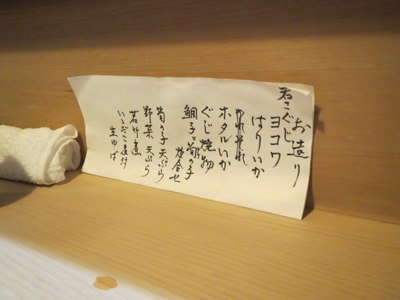 お造り
若さぐじ
ヨコワ
はりいか
のれそれ
ホタルいか
ぐじ焼物
鯛子と筍の子
焚合せ
筍の子天ぷら
野菜天ぷら
若竹煮
いいだこ煮付
生ゆば